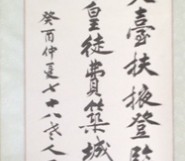 臺扶掖登
皇徒費築城
癸酉仲夏七十八老人